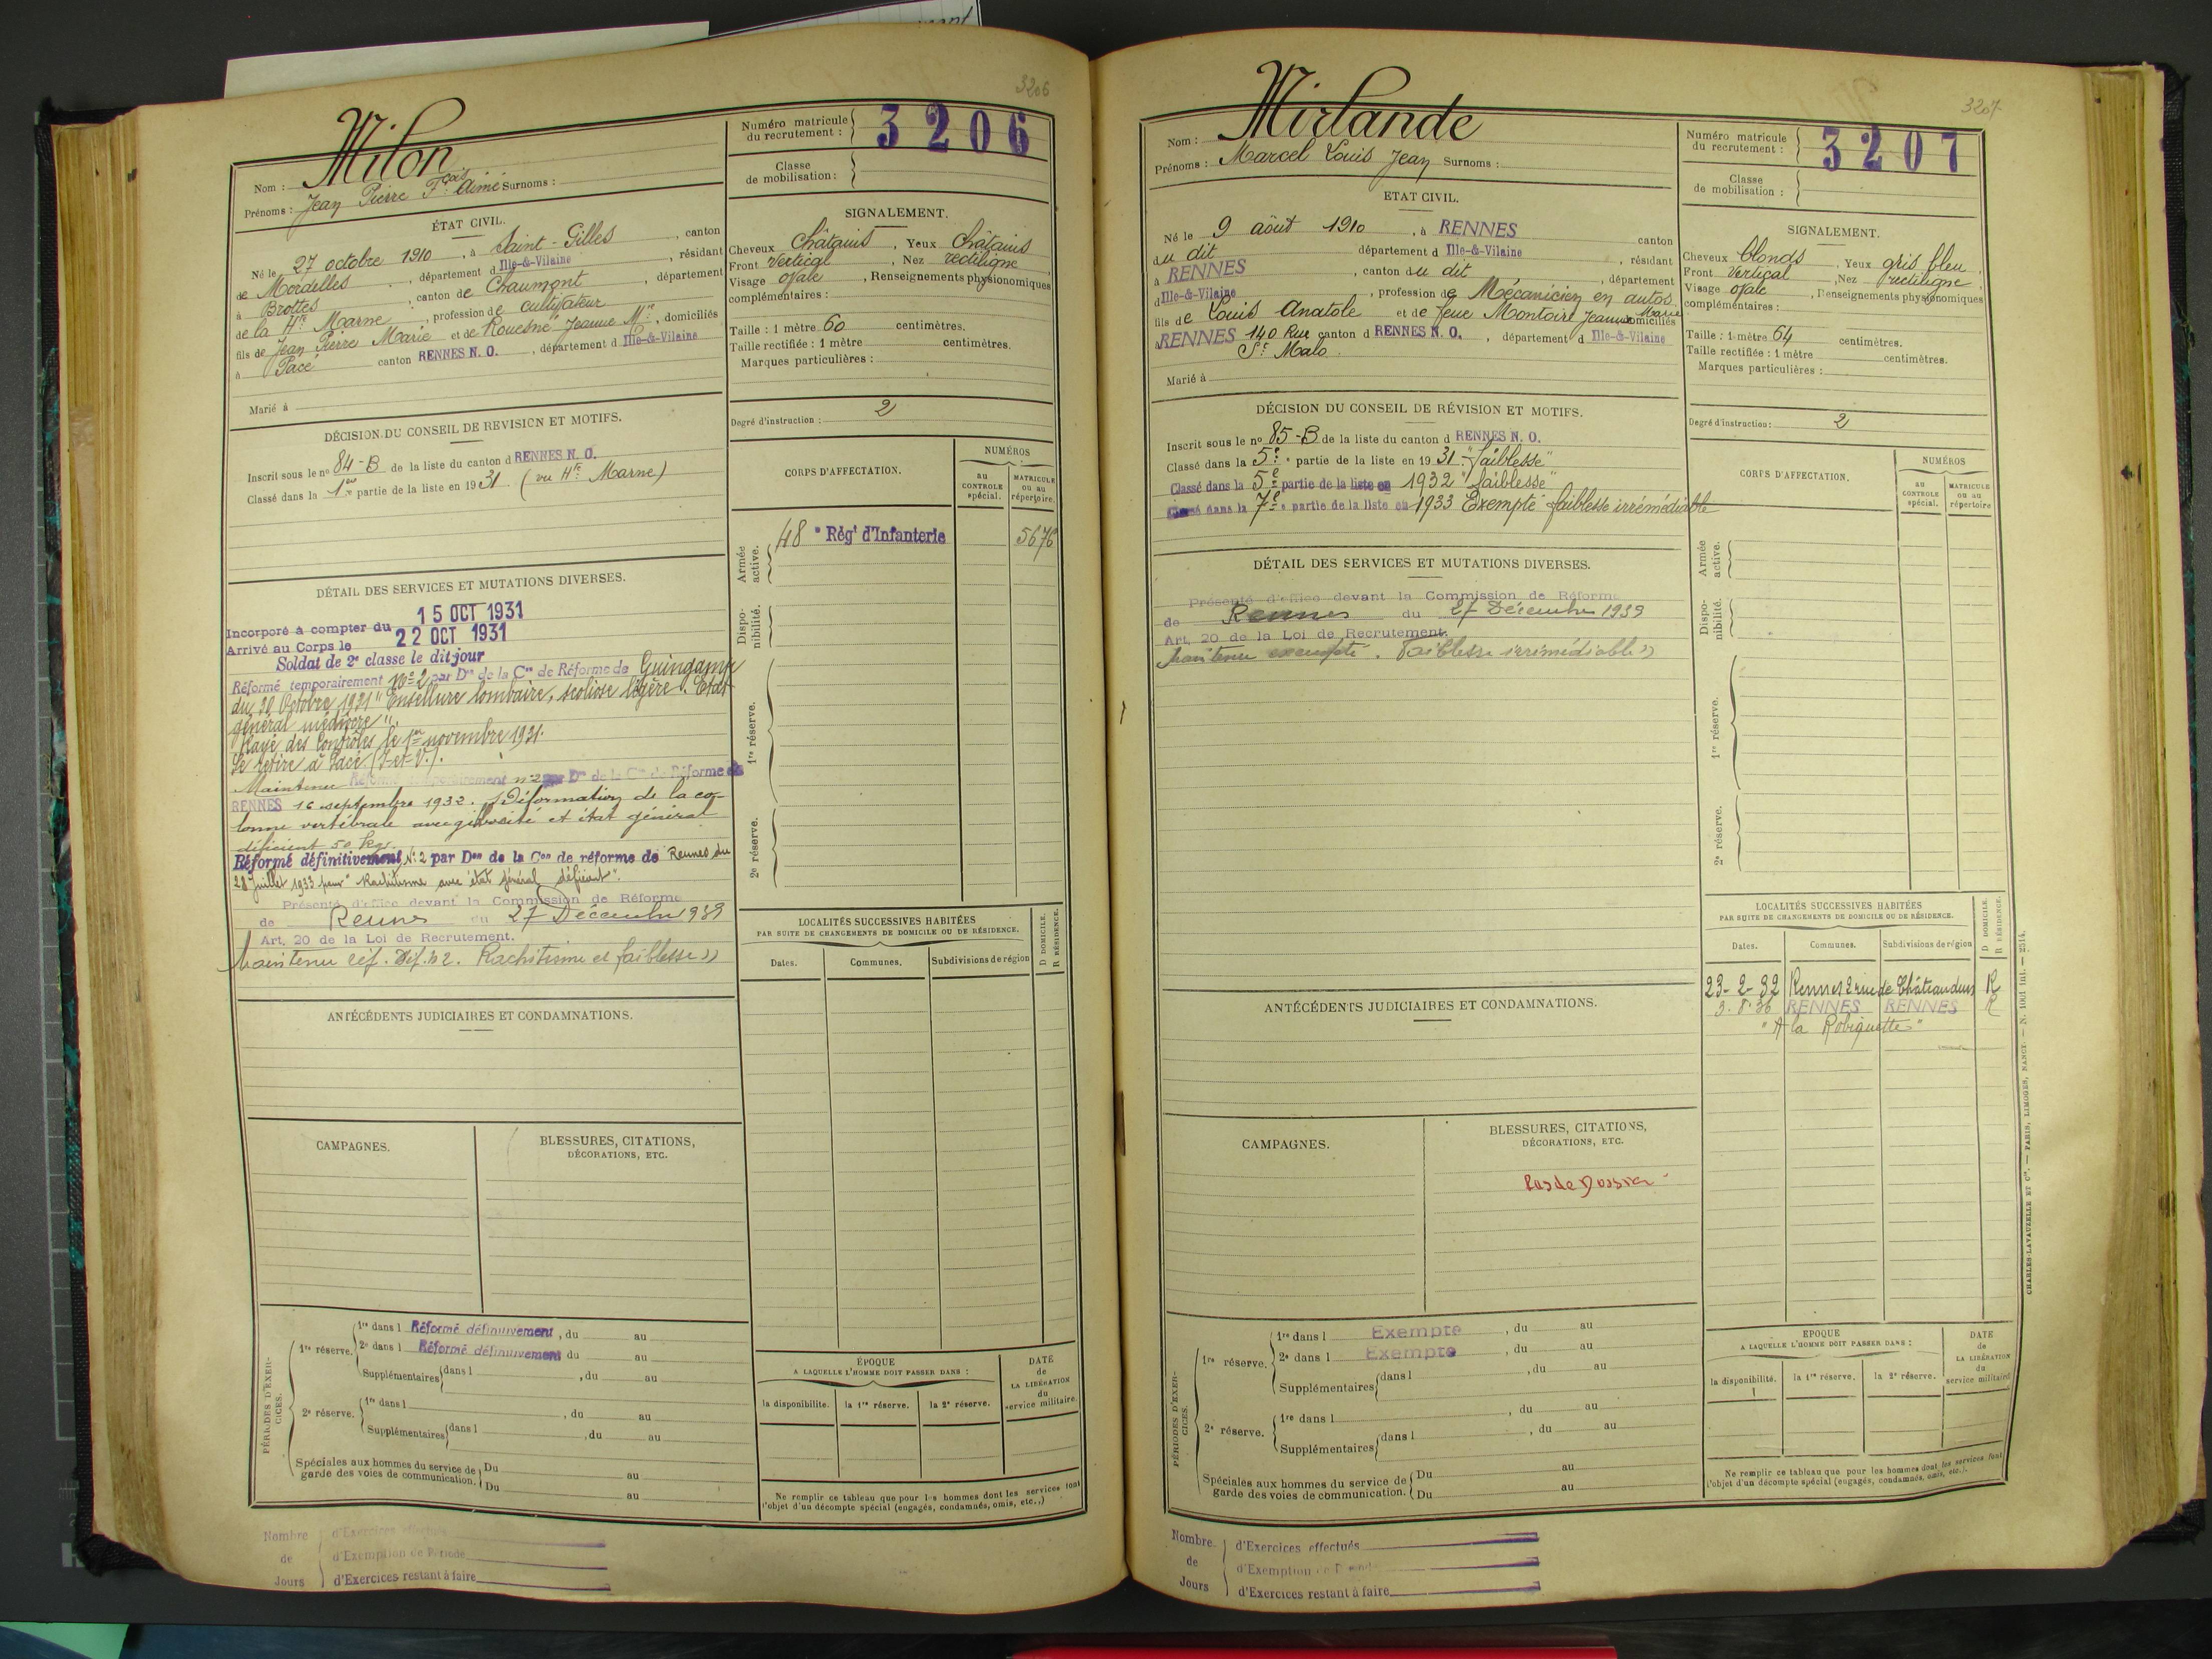 3206
Nom : Milon
Prénoms : Jean Pierre Fçois Aimé Surnoms :
Numéro matricule du recrutement : 3206
Classe de mobilisation :
ÉTAT CIVIL.
Né le 27 octobre 1910, à Saint-Gilles, canton
de Mordelles, département d Ille-&-Vilaine, résidant
à Brottes, canton de Chaumont, département
de la Hte Marne, profession de cultivateur
fils de Jean Pierre Marie et de Rouesné Jeanne Mie, domiciliés
à Pacé canton RENNES N. O., département d Ille-&-Vilaine
Marié à
SIGNALEMENT.
Cheveux Châtains, Yeux Châtains
Front Vertical, Nez rectiligne
Visage ovale, Renseignements physionomiques
complémentaires :
Taille : 1 mètre 60 centimètres.
Taille rectifiée : 1 mètre centimètres.
Marques particulières :
Degré d'instruction : 2
DÉCISION DU CONSEIL DE REVISION ET MOTIFS.
Inscrit sous le no 84-B de la liste du canton d RENNES N. O.
Classé dans la 1re partie de la liste en 1931. (vu Hte Marne)
CORPS D'AFFECTATION.
NUMÉROS
au CONTROLE spécial.
MATRICULE ou au répertoire.
Armée active.
48e Régt d'Infanterie 5676
Disponibilité.
1re réserve.
2e réserve.
DÉTAIL DES SERVICES ET MUTATIONS DIVERSES.
Incorporé à compter du 15 OCT 1931
Arrivé au Corps le 22 OCT 1931
Soldat de 2e classe le dit jour
Réformé temporairement No 2 par Don de la Con de Réforme de Guingamp
du 30 Octobre 1931 "Ensellure lombaire, scoliose légère. Etat
général médiocre".
Rayé des Contrôles le 1er novembre 1931.
Se retire à Pacé (I-et-V.).
Maintenu Réformé temporairement no 2 par Don de la Con de Réforme de
RENNES 16 septembre 1932. Déformation de la co-
lonne vertébrale avec gibbosité et état général
déficient 50 kgs.
Réformé définitivement No 2 par Don de la Con de réforme de Rennes du
28 Juillet 1933 pour "Rachitisme avec état général déficient".
Présenté d'office devant la Commission de Réforme
de Rennes du 27 Décembre 1939
Art. 20 de la Loi de Recrutement.
Maintenu réf. Déf. n 2. Rachitisme et faiblesse"
LOCALITÉS SUCCESSIVES HABITÉES
PAR SUITE DE CHANGEMENTS DE DOMICILE OU DE RÉSIDENCE.
D DOMICILE.
R RÉSIDENCE.
Dates. Communes. Subdivisions de région
ANTÉCÉDENTS JUDICIAIRES ET CONDAMNATIONS.
CAMPAGNES.
BLESSURES, CITATIONS,
DÉCORATIONS, ETC.
PÉRIODES D'EXERCICES.
1re réserve. 1re dans l Réformé définitivement, du au
2e dans l Réformé définitivement du au
Supplémentaires dans l , du au
2e réserve. 1re dans l , du au
Supplémentaires dans l , du au
Spéciales aux hommes du service de garde des voies de communication. Du au
Du au
ÉPOQUE
A LAQUELLE L'HOMME DOIT PASSER DANS :
la disponibilité. la 1re réserve. la 2e réserve.
DATE de LA LIBÉRATION du service militaire.
Ne remplir ce tableau que pour les hommes dont les services font
l'objet d'un décompte spécial (engagés, condamnés, omis, etc.,)
Nombre de Jours
d'Exercices effectués
d'Exemption de Période
d'Exercices restant à faire
3207
Nom : Mirlande
Prénoms : Marcel Louis Jean Surnoms :
Numéro matricule du recrutement : 3207
Classe de mobilisation :
ETAT CIVIL.
Né le 9 août 1910, à RENNES canton
du dit département d Ille-&-Vilaine, résidant
à RENNES, canton du dit, département
d Ille-&-Vilaine, profession de Mécanicien en autos
fils de Louis Anatole et de feue Montoire Jeanne Marie domiciliés
à RENNES 140 Rue canton d RENNES N. O., département d Ille-&-Vilaine
St Malo.
Marié à
SIGNALEMENT.
Cheveux blonds, Yeux gris bleu,
Front Vertical, Nez rectiligne
Visage ovale, Renseignements physionomiques
complémentaires :
Taille : 1 mètre 64 centimètres.
Taille rectifiée : 1 mètre centimètres.
Marques particulières :
Degré d'instruction : 2
DÉCISION DU CONSEIL DE RÉVISION ET MOTIFS.
Inscrit sous le no 85-B de la liste du canton d RENNES N. O.
Classé dans la 5e partie de la liste en 1931. "faiblesse"
Classé dans la 5e partie de la liste en 1932 "faiblesse"
Classé dans la 7e partie de la liste en 1933 Exempté faiblesse irrémédiable
CORPS D'AFFECTATION.
NUMÉROS
au CONTROLE spécial.
MATRICULE ou au répertoire
Armée active.
Disponibilité.
1re réserve.
2e réserve.
DÉTAIL DES SERVICES ET MUTATIONS DIVERSES.
Présenté d'office devant la Commission de Réforme
de Rennes du 27 Décembre 1939
Art. 20 de la Loi de Recrutement.
Maintenu exempté. Faiblesse irrémédiable"
LOCALITÉS SUCCESSIVES HABITÉES
PAR SUITE DE CHANGEMENTS DE DOMICILE OU DE RÉSIDENCE.
D DOMICILE.
R RÉSIDENCE.
Dates. Communes. Subdivisions de région
23-2-32 Rennes 2 rue de Châteaudun R
3.8.36 RENNES RENNES R
"A la Robiquette"
ANTÉCÉDENTS JUDICIAIRES ET CONDAMNATIONS.
CAMPAGNES.
BLESSURES, CITATIONS,
DÉCORATIONS, ETC.
Pas de Dossier
PÉRIODES D'EXERCICES.
1re réserve. 1re dans l Exempté, du au
2e dans l Exempté, du au
Supplémentaires dans l , du au
2e réserve. 1re dans l , du au
Supplémentaires dans l , du au
Spéciales aux hommes du service de garde des voies de communication. Du au
Du au
EPOQUE
A LAQUELLE L'HOMME DOIT PASSER DANS :
la disponibilité. la 1re réserve. la 2e réserve.
DATE de LA LIBÉRATION du service militaire
Ne remplir ce tableau que pour les hommes dont les services font
l'objet d'un décompte spécial (engagés, condamnés, omis, etc.).
CHARLES-LAVAUZELLE ET Cie. — PARIS, LIMOGES, NANCY. — N. 1001 int. — 2514.
Nombre de Jours
d'Exercices effectués
d'Exemption de Période
d'Exercices restant à faire